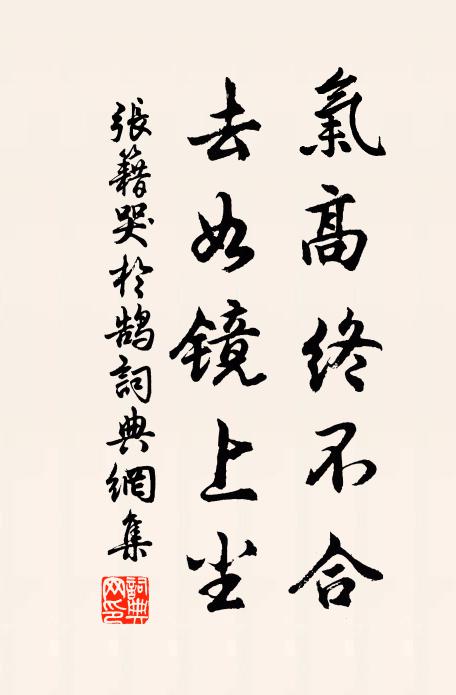 氣高終不合
去如镜上尘
張籍哭於鵠詞典網集
詞典网印